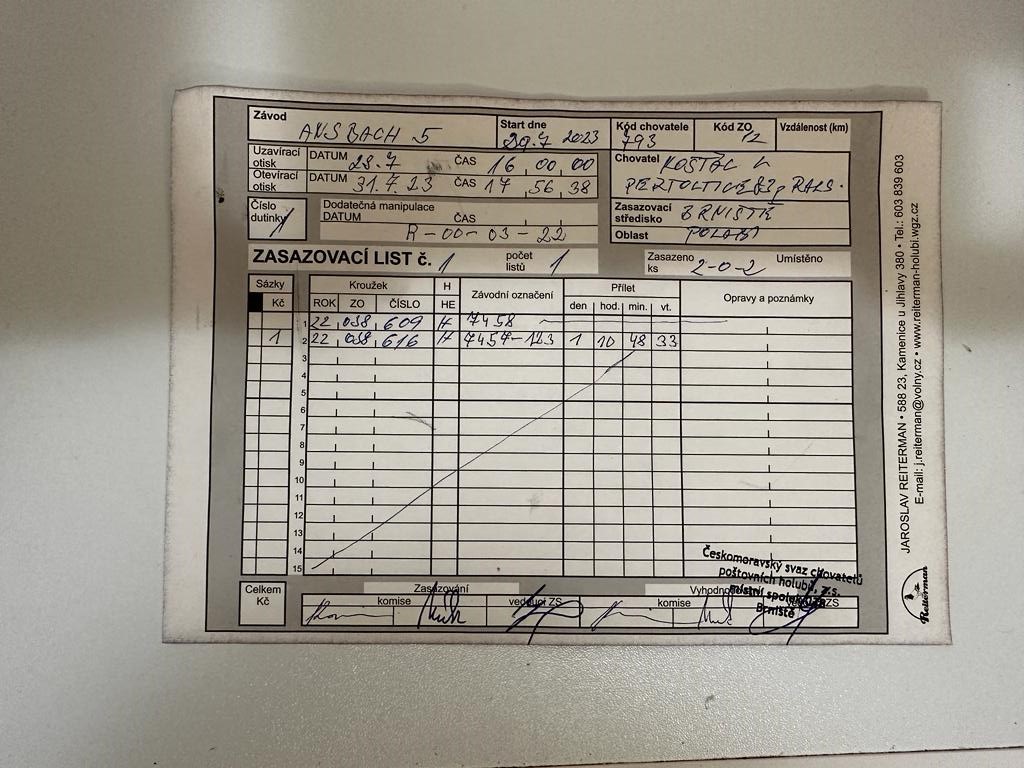 Závod
ANSBACH 5
Start dne
29.7 2023
Kód chovatele
793
Kód ZO
12
Vzdálenost (km)
Uzavírací otisk DATUM 28.7 ČAS 16 00 00
Otevírací otisk DATUM 31.7.23 ČAS 17 56 38
Chovatel KOŠŤÁL
Číslo dutinky 1
Dodatečná manipulace
DATUM ČAS
R-00-03-22
Zasazovací středisko BRNIŠTĚ
Oblast POLABÍ
ZASAZOVACÍ LIST č. 1 počet listů 1
Zasazeno ks 2-0-2 Umístěno
Sázky Kroužek H Závodní označení Přílet Opravy a poznámky
Kč ROK ZO ČÍSLO HE den hod. min. vt.
1 22 058 609 H 7458
1 2 22 058 616 H 7457-123 1 10 48 33
3
4
5
6
7
8
9
10
11
12
13
14
15
Celkem Kč
Zasazování
komise vedoucí ZS
komise
Českomoravský svaz chovatelů
poštovních holubů, z.s.
místní spolek
Brniště
JAROSLAV REITERMAN • 588 23, Kamenice u Jihlavy 380 • Tel.: 603 839 603
E-mail: j.reiterman@volny.cz • www.reiterman-holubi.wgz.cz
Reiterman